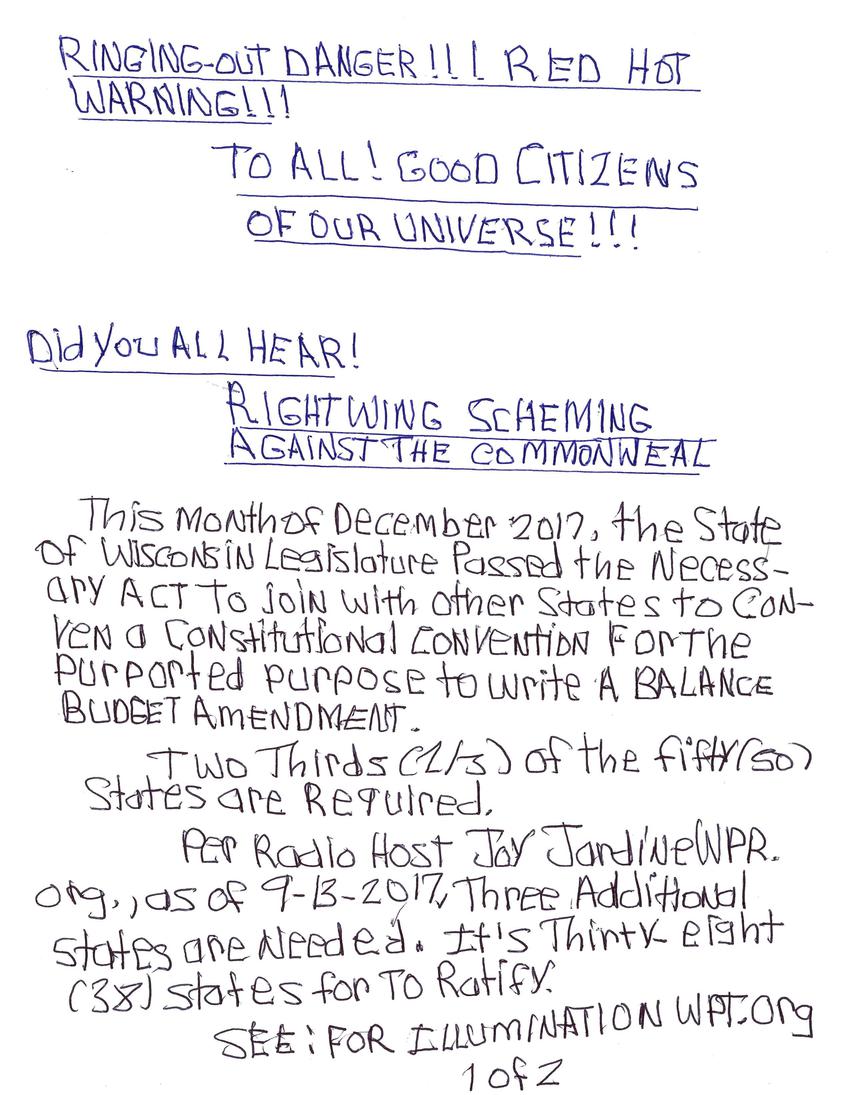 RINGING-OUT DANGER!!! RED HOT
WARNING!!!
TO ALL! GOOD CITIZENS
OF OUR UNIVERSE!!!
Did YOU ALL HEAR!
RIGHTWING SCHEMING
AGAINST THE COMMONWEAL
This Month of December 2017, the State
Of WISCONSIN Legislature Passed the Necess-
ary ACT To join with other States to CON-
VEN a CONStitutional CONVENTION FOR The
purported purpose to write A BALANCE
BUDGET AMENDMENT.
Two Thirds (2/3) of the fifty (50)
States are Required.
Per Radio Host Joy JardineWPR.
Org., as of 9-13-2017, Three Additional
states are Needed. It's Thirty-eight
(38) states for To Ratify.
SEE: FOR ILLUMINATION WPT.Org
1 of 2